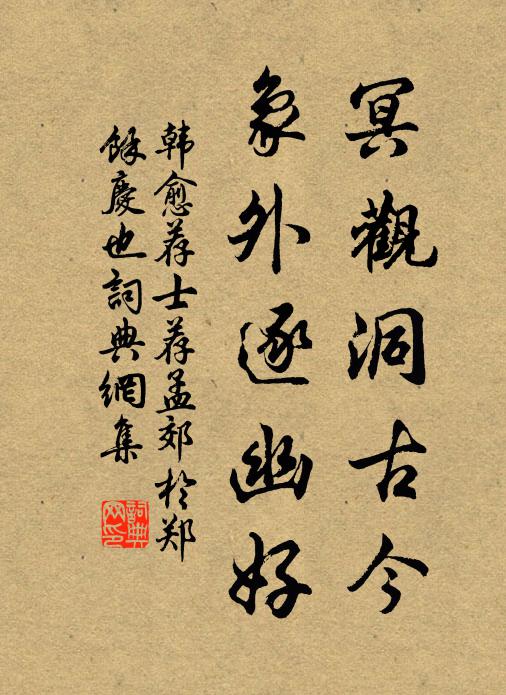 冥觀洞古今
象外逐幽好
韩愈荐士荐孟郊於郑
餘慶也詞典網集
詞典
网印